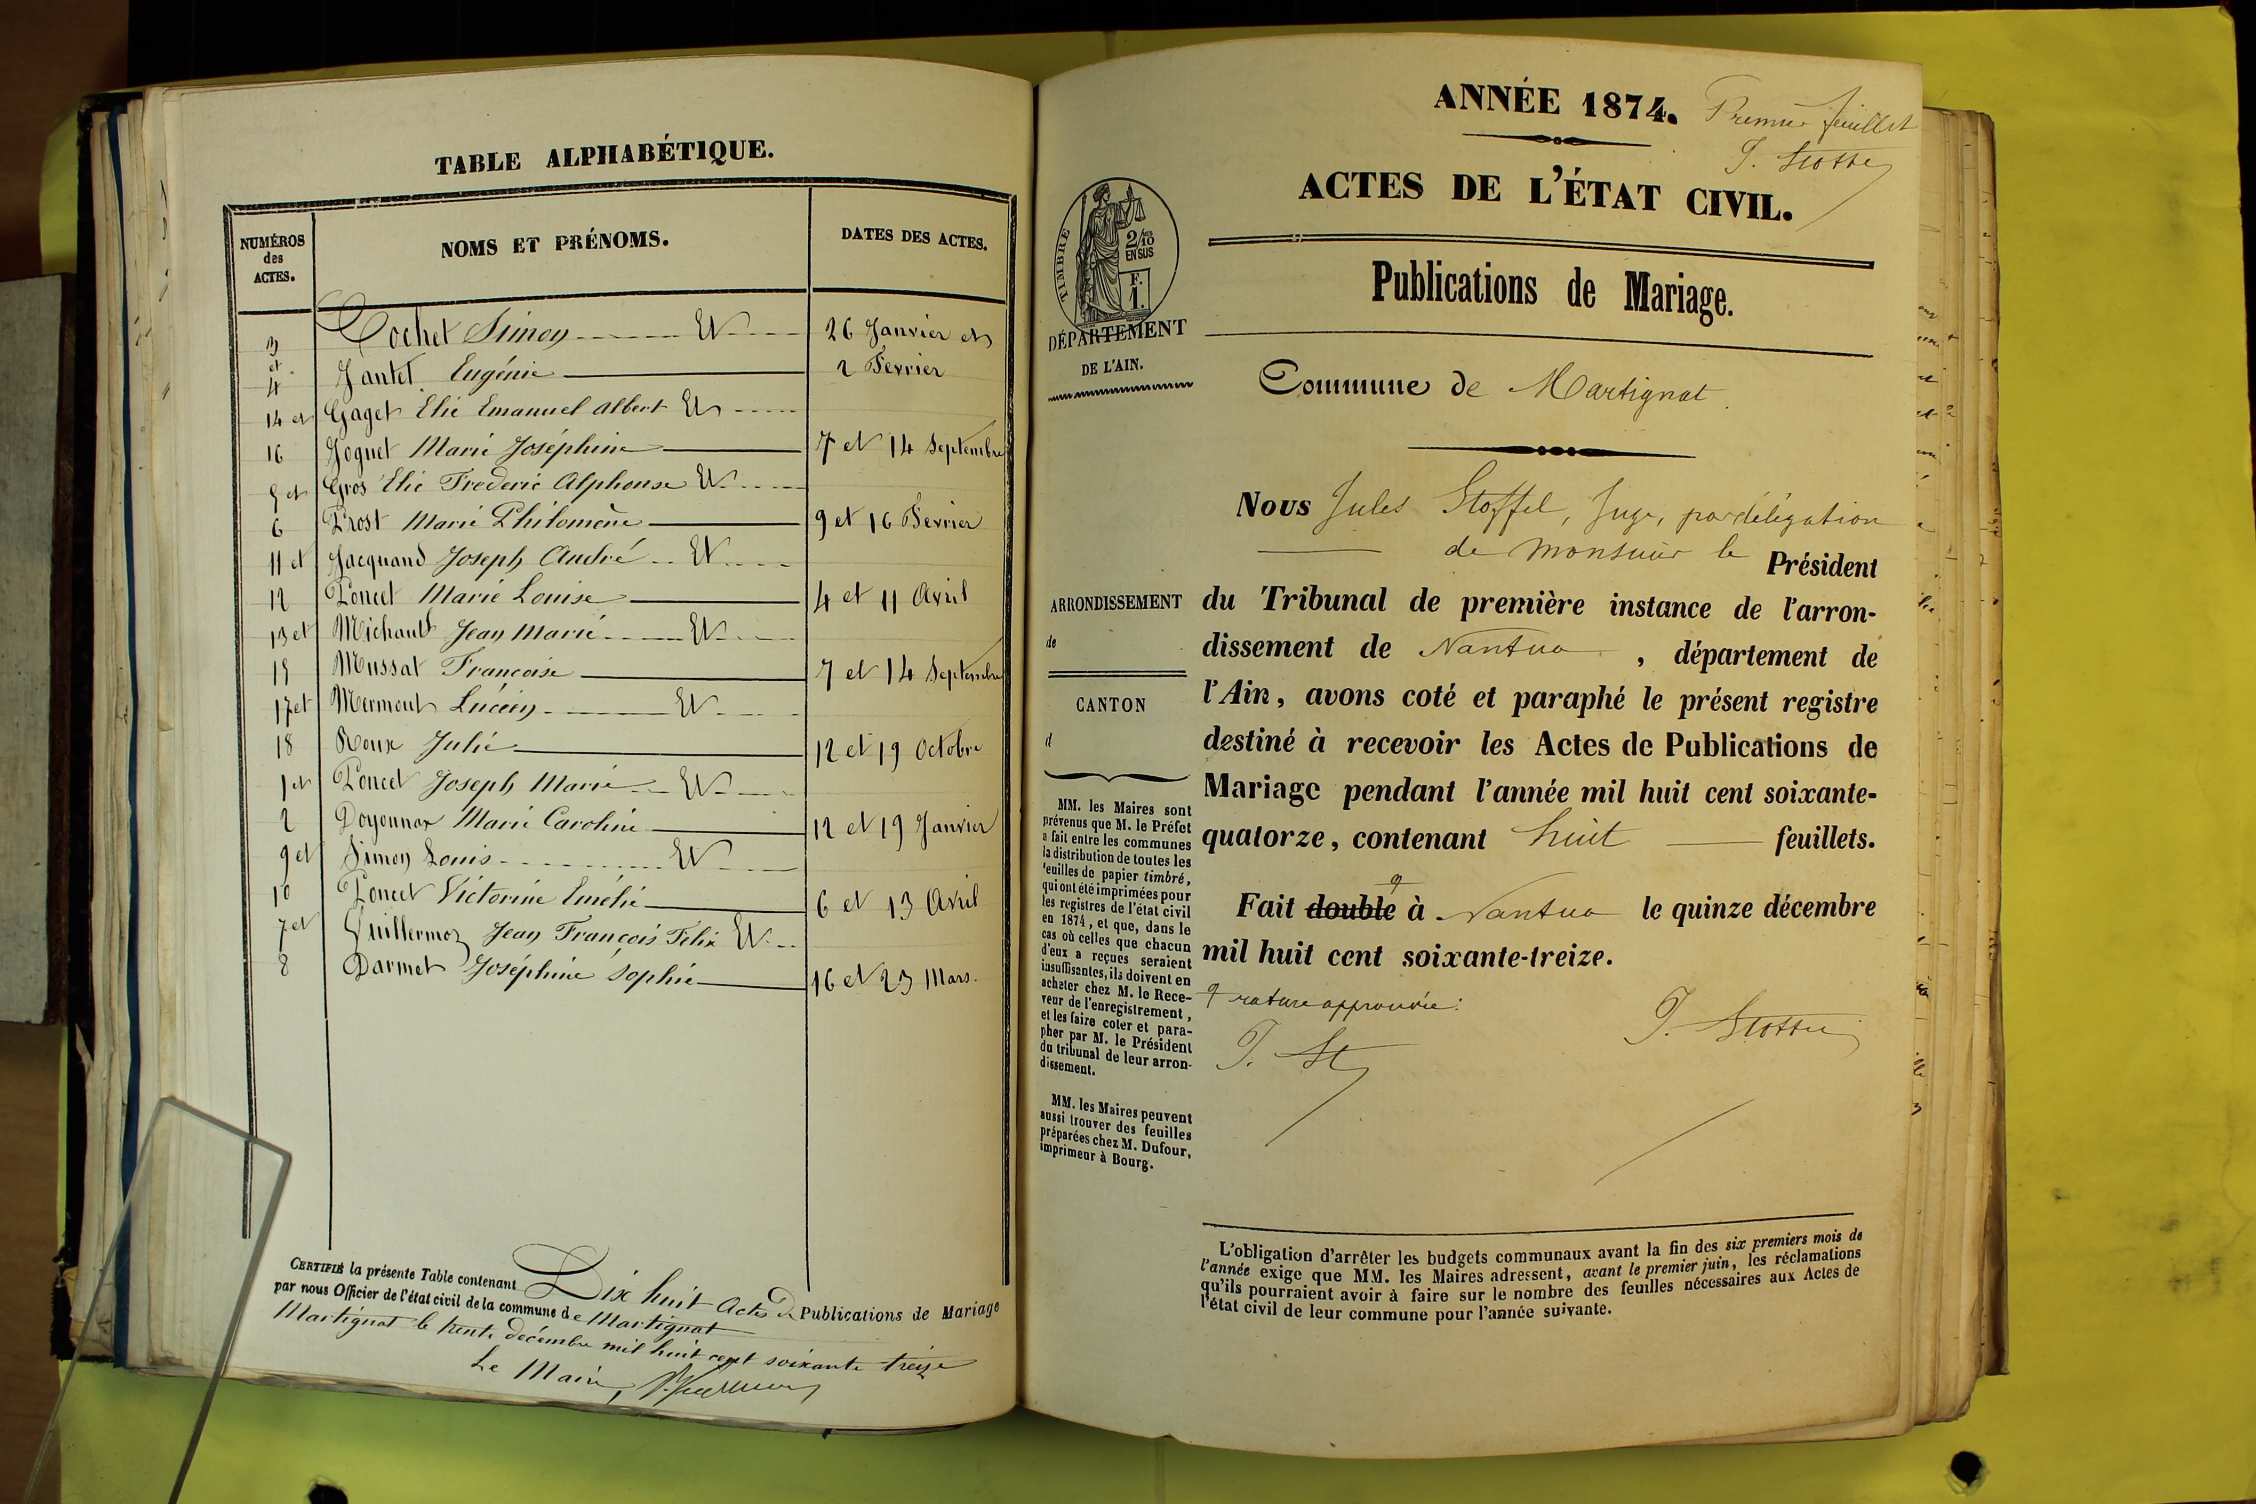 TABLE ALPHABÉTIQUE.
NUMÉROS des ACTES.
NOMS ET PRÉNOMS.
DATES DES ACTES.
3 Cochet Simon Et 26 Janvier et
et 4 Jantet Eugénie 2 Fevrier
14 et Gaget Elie Emanuel Albert Et
16 Joguet Marie Joséphine 7 et 14 Septembre
5 et Gros Elie Frederic Alphonse Et
6 Prost Marie Philomène 9 et 16 Fevrier
11 et Jacquand Joseph André Et
12 Poncet Marie Louise 4 et 11 Avril
13 et Michault Jean Marie Et
15 Mussat Francoise 7 et 14 Septembre
17 et Mermont Lucien Et
18 Roux Julie 12 et 19 Octobre
1 et Poncet Joseph Marie Et
2 Doyonnax Marie Caroline 12 et 19 Janvier
9 et Simon Louis Et
10 Poncet Victorine Emélie 6 et 13 Avril
7 et Vuillermoz Jean François Félix Et
8 Darmet Joséphine Sophie 16 et 23 Mars.
CERTIFIÉ la présente Table contenant Dix huit Actes de Publications de Mariage
par nous Officier de l'état civil de la commune de Martignat
Martignat le trente decémbre mil huit cent soixante treize
Le Maire,
ANNÉE 1874.
Premier feuillet
ACTES DE L'ÉTAT CIVIL.
TIMBRE
2/10 EN SUS
F. 1.
Publications de Mariage.
DÉPARTEMENT
DE L'AIN.
Commune de Martignat
Nous Jules Stoffel, Juge, par délégation
de Monsieur le Président
ARRONDISSEMENT
de
CANTON
d
du Tribunal de première instance de l'arron-
dissement de Nantua, département de
l'Ain, avons coté et paraphé le présent registre
destiné à recevoir les Actes de Publications de
Mariage pendant l'année mil huit cent soixante-
quatorze, contenant huit feuillets.
Fait double à Nantua le quinze décembre
mil huit cent soixante-treize.
rature approuvée:
J. St
MM. les Maires sont
prévenus que M. le Préfet
a fait entre les communes
la distribution de toutes les
feuilles de papier timbré,
qui ont été imprimées pour
les registres de l'état civil
en 1874, et que, dans le
cas où celles que chacun
d'eux a reçues seraient
insuffisantes, ils doivent en
acheter chez M. le Rece-
veur de l'enregistrement,
et les faire coter et para-
pher par M. le Président
du tribunal de leur arron-
dissement.
MM. les Maires peuvent
aussi trouver des feuilles
préparées chez M. Dufour,
imprimeur à Bourg.
L'obligation d'arrêter les budgets communaux avant la fin des six premiers mois de
l'année exige que MM. les Maires adressent, avant le premier juin, les réclamations
qu'ils pourraient avoir à faire sur le nombre des feuilles nécessaires aux Actes de
l'état civil de leur commune pour l'année suivante.